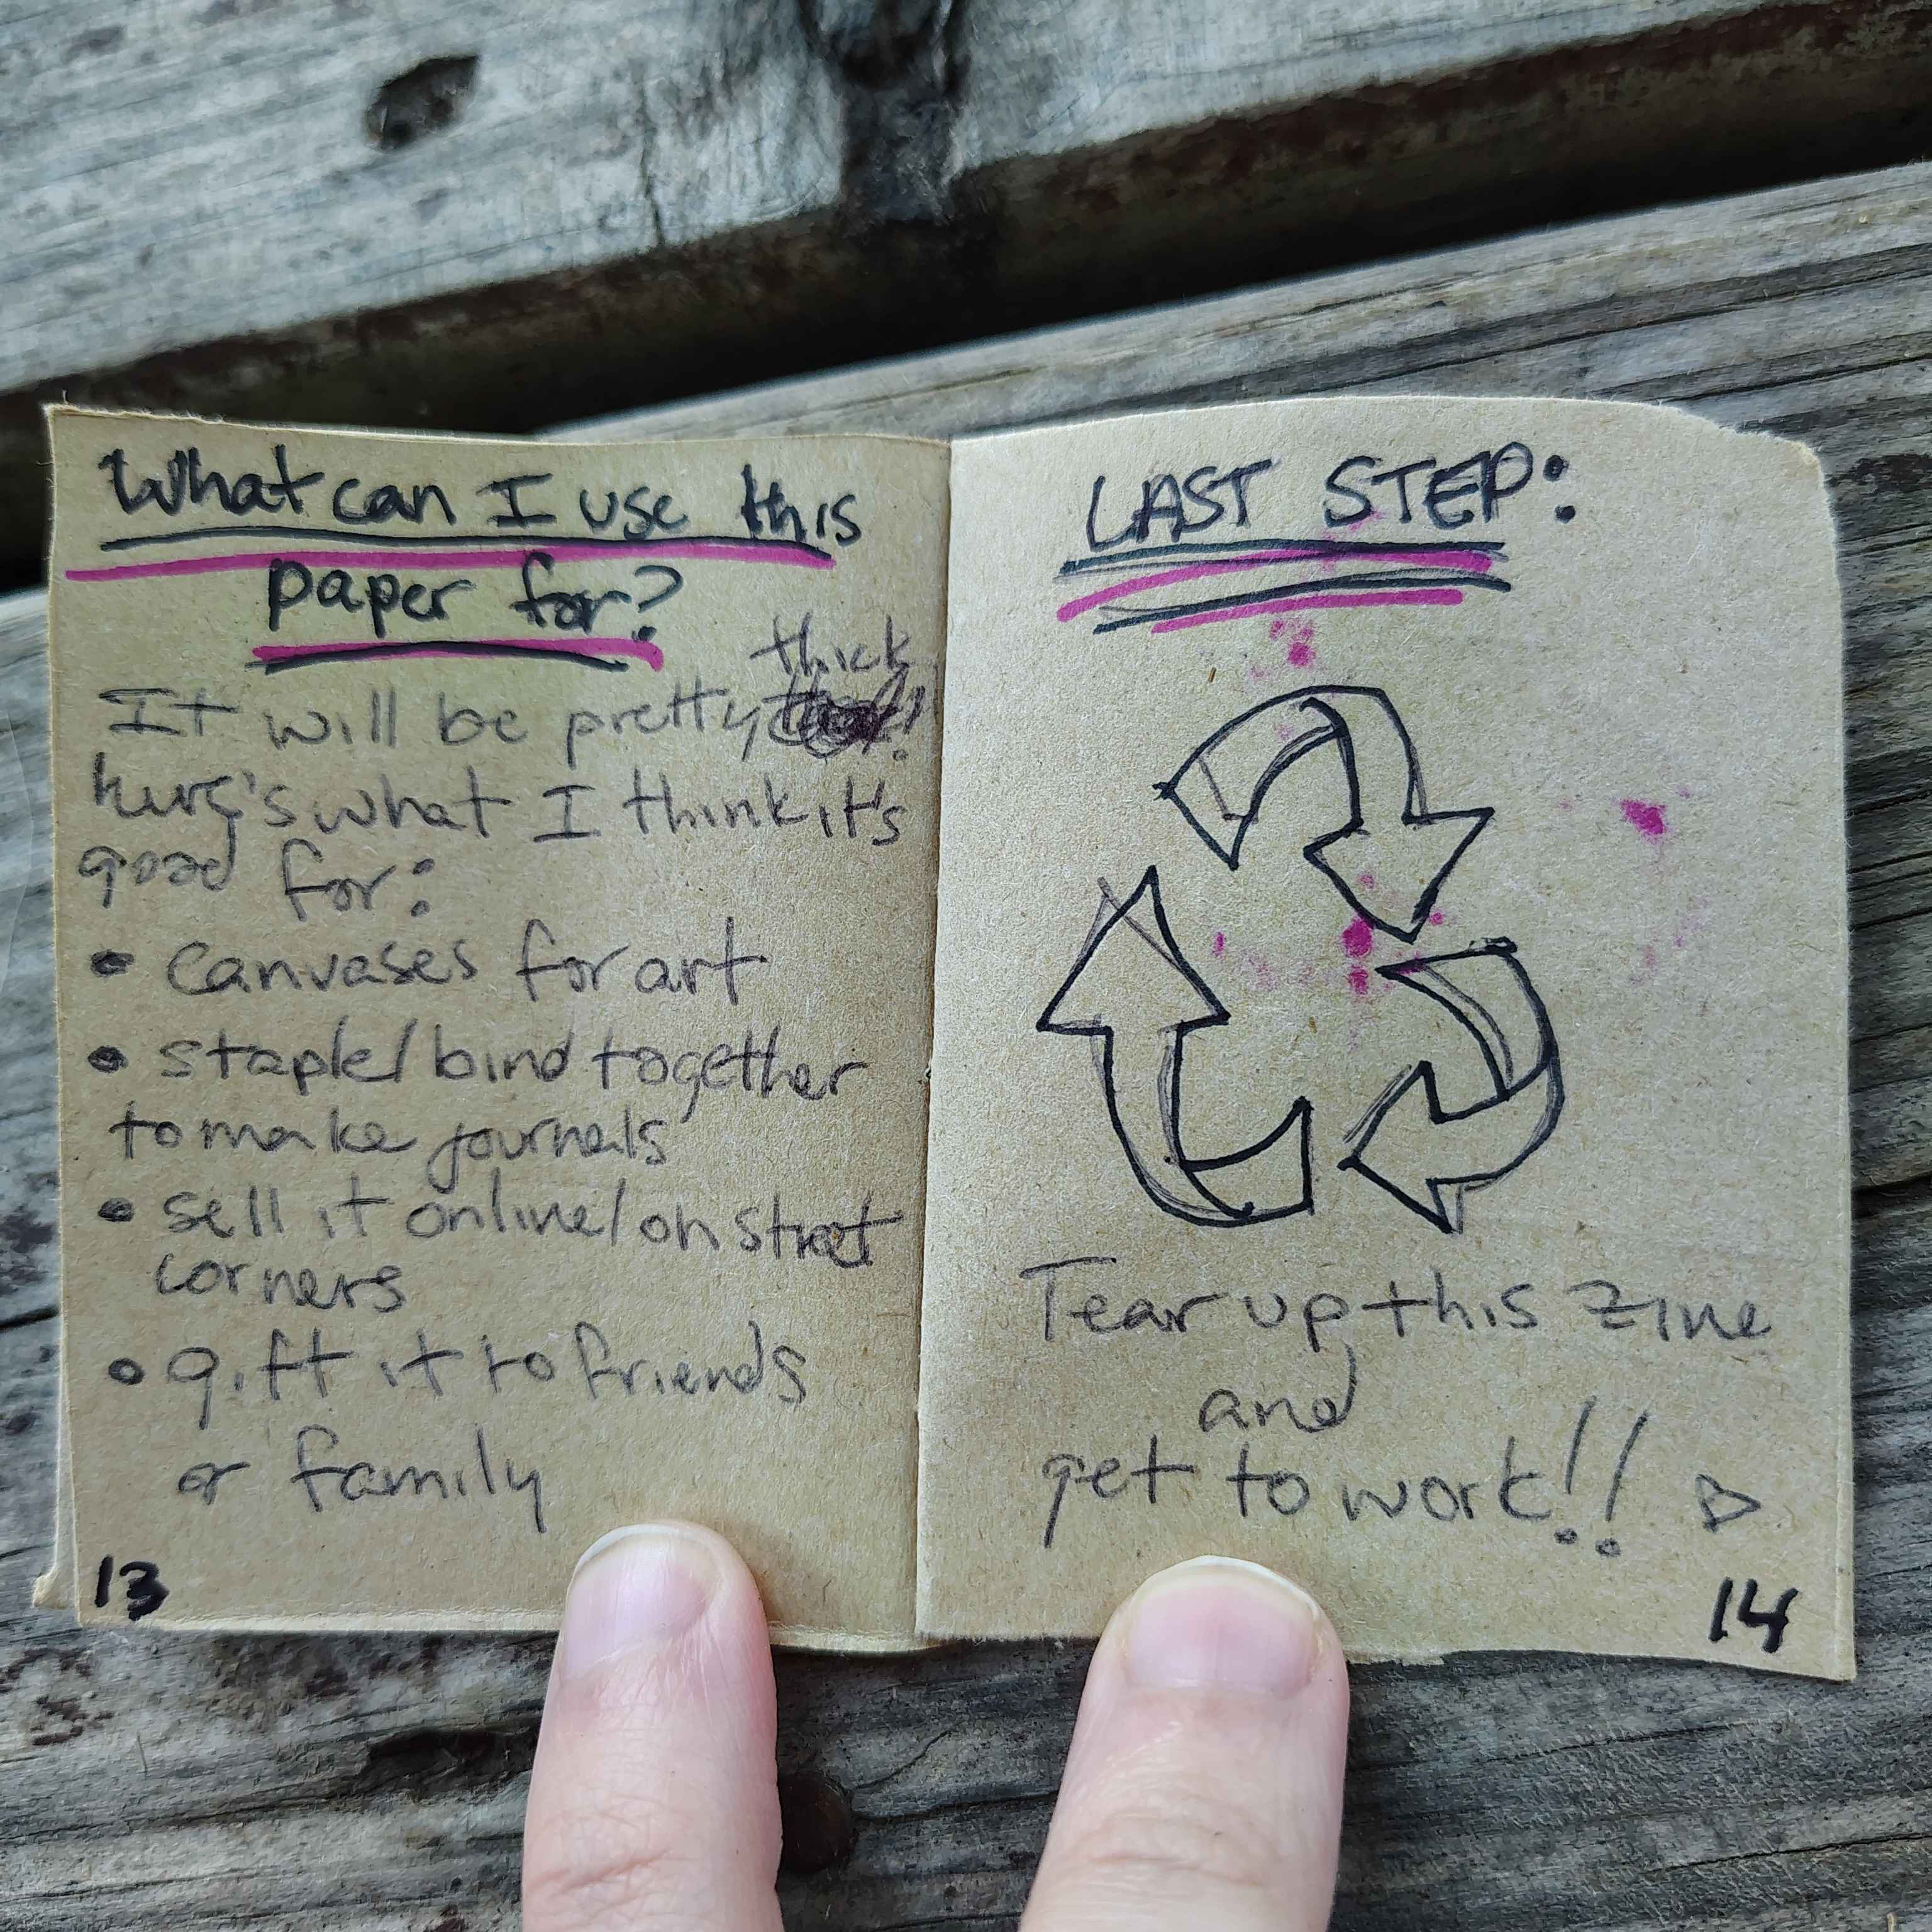 What can I use this
paper for?
thick
It will be pretty
here's what I think it's
good for:
• canvases for art
• staple/bind together
to make journals
• sell it online/on street
corners
• gift it to friends
or family
13
LAST STEP:
Tear up this zine
and
get to work!!
14